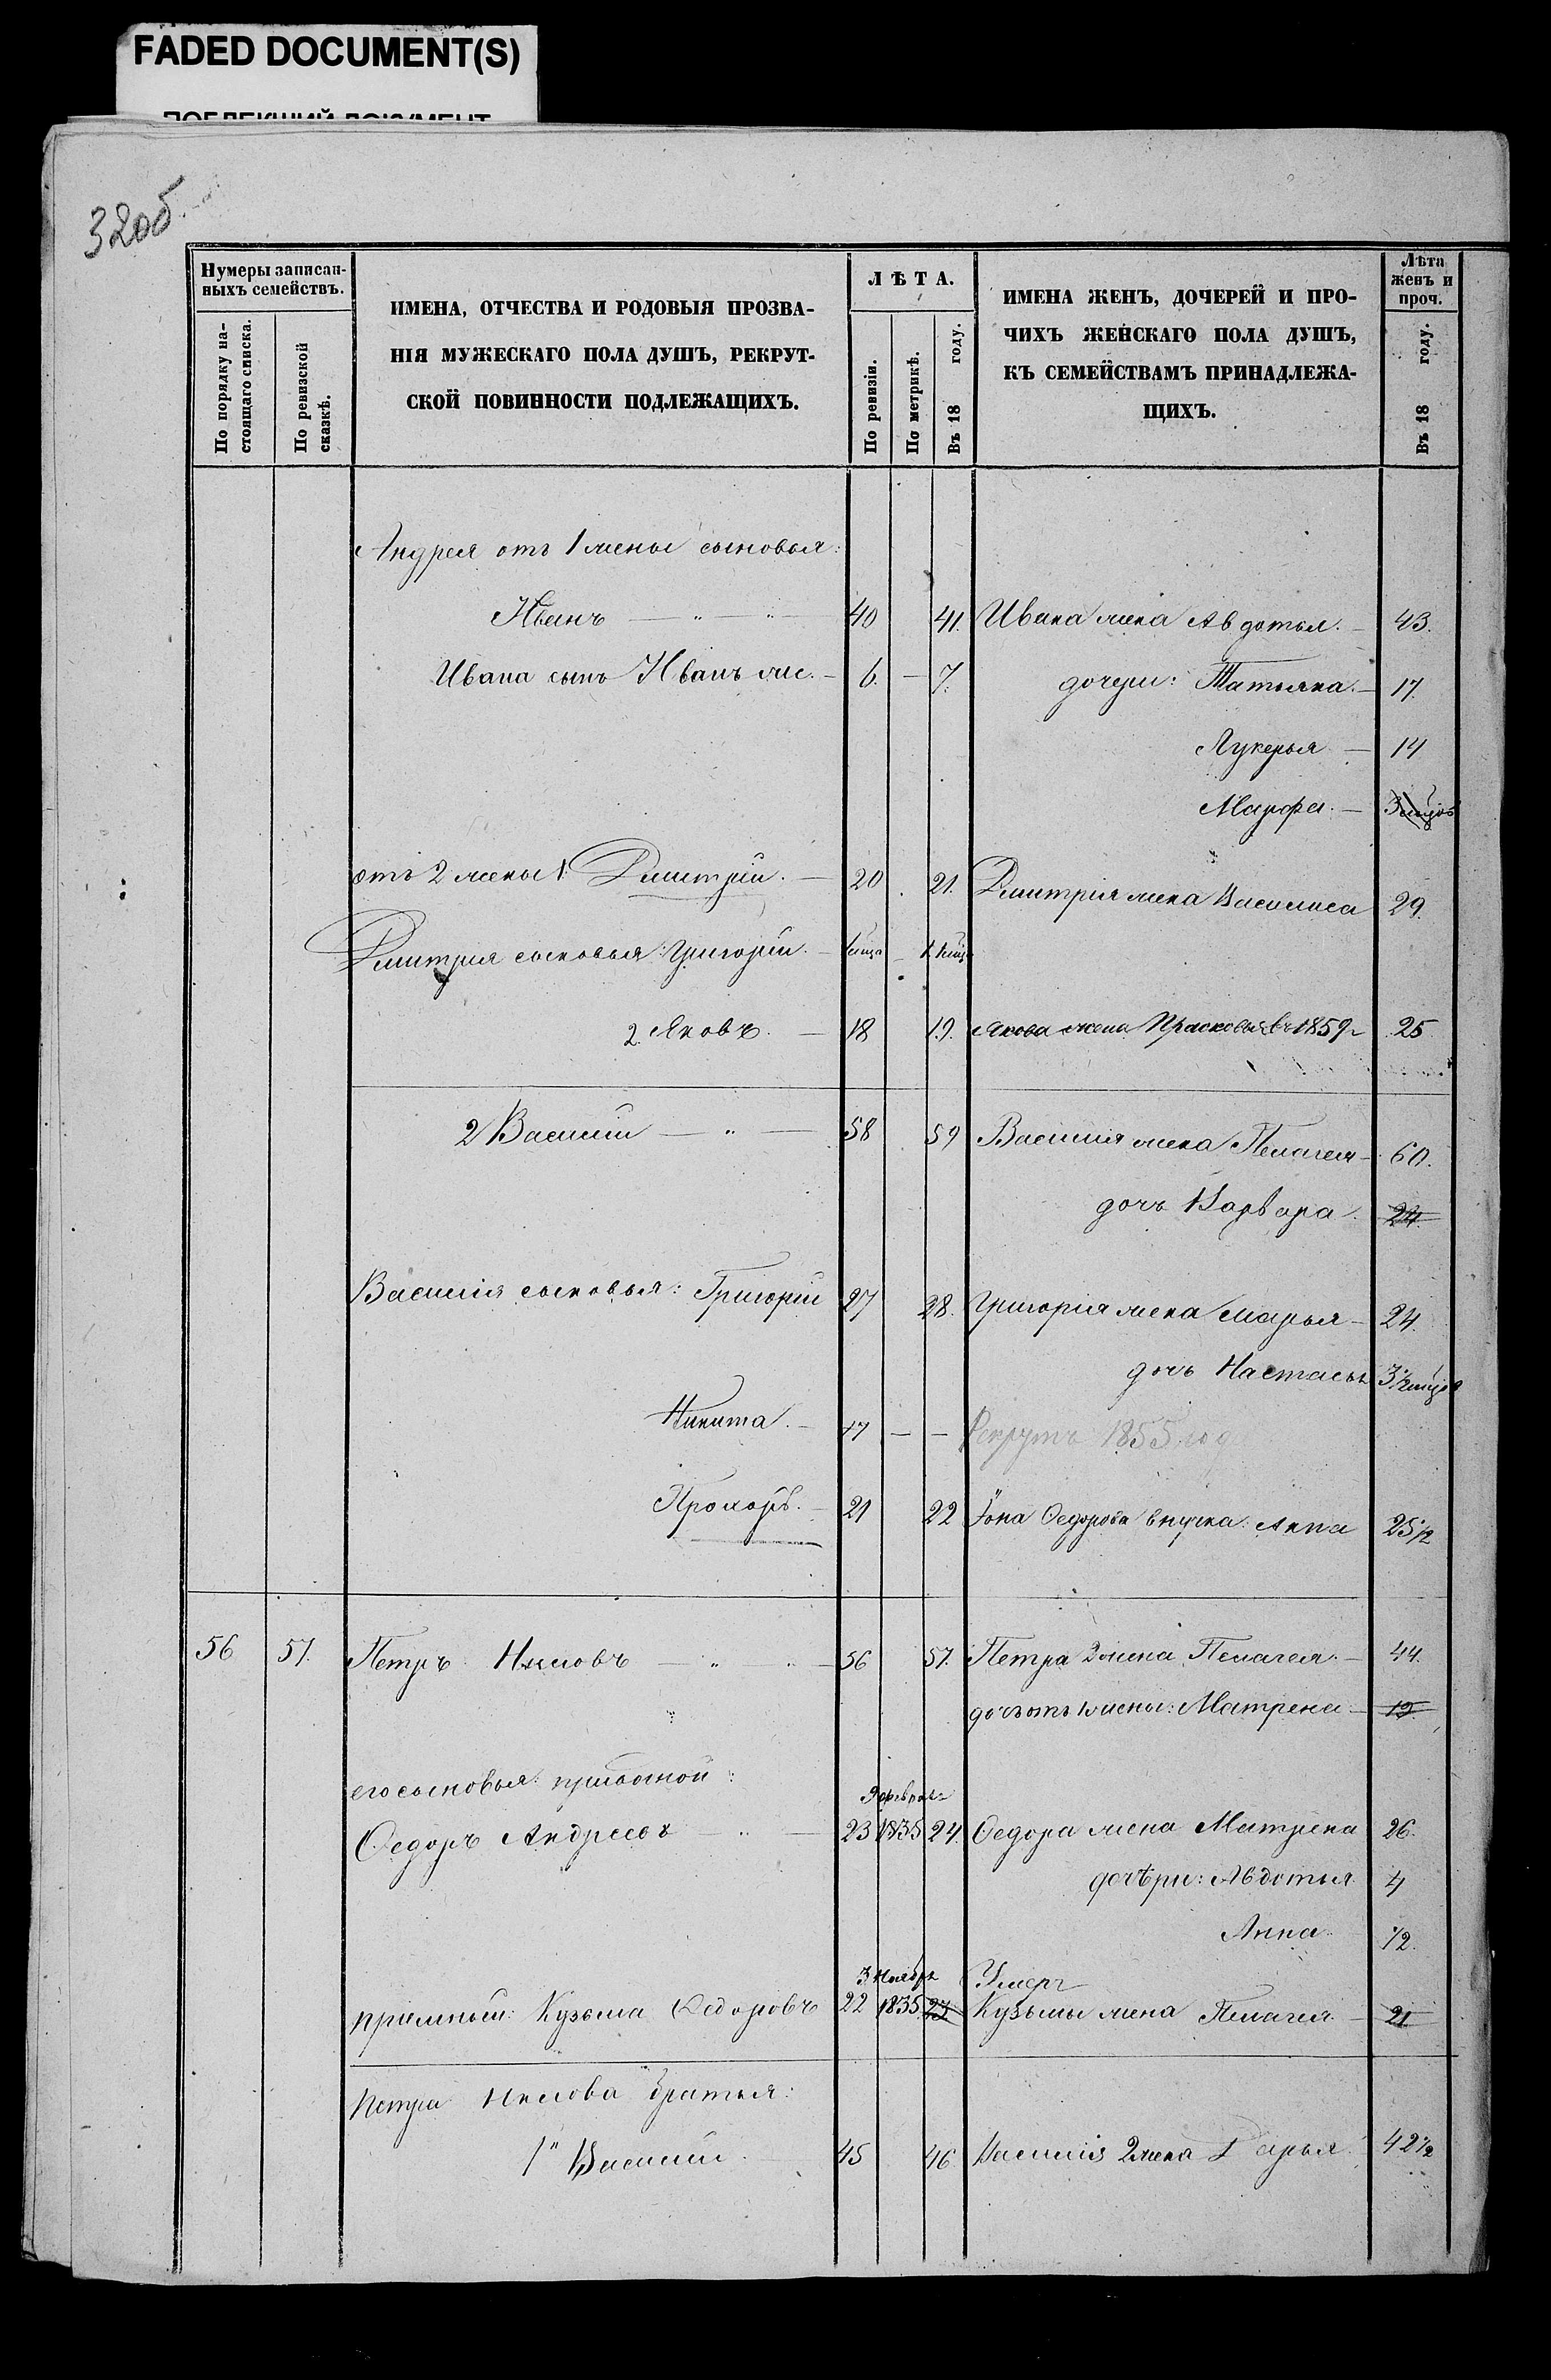 FADED DOCUMENT(S)
ПОБЛЕКШИЙ ДОКУМЕНТ
32об.
Нумеры записан-
ныхъ семействъ.
По порядку на-
стоящаго списка.
По ревизской
сказкѣ.
ИМЕНА, ОТЧЕСТВА И РОДОВЫЯ ПРОЗВА-
НІЯ МУЖЕСКАГО ПОЛА ДУШЪ, РЕКРУТ-
СКОЙ ПОВИННОСТИ ПОДЛЕЖАЩИХЪ.
ЛѢТА.
По ревизіи.
По метрикѣ.
Въ 18 году.
ИМЕНА ЖЕНЪ, ДОЧЕРЕЙ И ПРО-
ЧИХЪ ЖЕНСКАГО ПОЛА ДУШЪ,
КЪ СЕМЕЙСТВАМЪ ПРИНАДЛЕЖА-
ЩИХЪ.
Лѣта
женъ и
проч.
Въ 18 году.
Андрея отъ 1 жены сыновья:
Иванъ — " — " — 40 41. Ивана жена Авдотья. — 43.
Ивана сынъ Иванъ же. — 6. — 7. дочери: Татьяна. — 17.
Лукерья — 14
Марфа. — 3
отъ 2 жены 1. Дмитрій. — 20 21. Дмитрія жена Василиса 29.
Дмитрія сыновья: Григорій. —
2. Яковъ. — 18 19. Якова жена Прасковья въ 1859 25
2 Василій — " — 58 59 Василія жена Пелагея — 60.
дочь Варвара. 24.
Василія сыновья: Григорій 27 28. Григорія жена Марья — 24.
дочь Настасья 3½
Никита. — 17 — — Рекрутъ 1855 год
Прохоръ. — 21 22 Іона Федорова внучка: Анна 25½
56 57. Петръ Ниловъ — " — 56 57. Петра 2 жена Пелагея. — 44.
дочь отъ 1 жены: Матрена — 19.
его сыновья:
9 февраля
Федоръ Андреевъ — " — 23 1835 24. Федора жена Матрена 26.
дочѣри: Авдотья 4
Анна ½.
3 Ноября Умеръ
пріимный: Кузьма Федоровъ 22 1835 23. Кузьмы жена Пелагея — 21
Петра Нилова братья:
1" Василій. — 45 46 Василія 2 жена Дарья. 42½